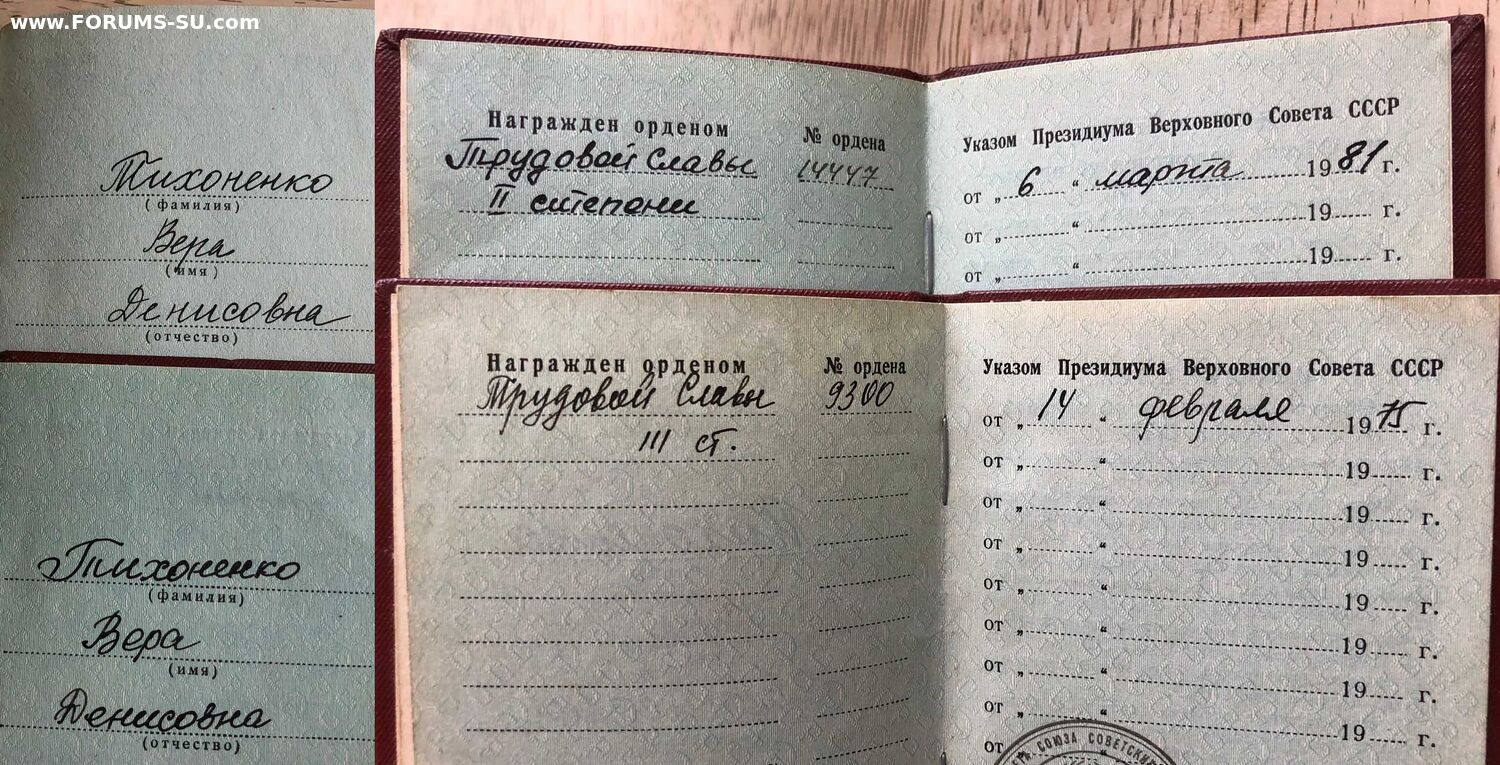 www.FORUMS-SU.com
Тихоненко
(фамилия)
Вера
(имя)
Денисовна
(отчество)
Тихоненко
(фамилия)
Вера
(имя)
Денисовна
(отчество)
Награжден орденом № ордена
Трудовой Славы 14447
II степени
Указом Президиума Верховного Совета СССР
от „ 6 “ марта 1981 г.
от „ “ 19 г.
от „ “ 19 г.
Награжден орденом № ордена
Трудовой Славы 9300
III ст.
Указом Президиума Верховного Совета СССР
от „ 14 “ февраля 1975 г.
от „ “ 19 г.
от „ “ 19 г.
от „ “ 19 г.
от „ “ 19 г.
от „ “ 19 г.
от „ “ 19 г.
от „ “ 19 г.
от г.
СОЮЗА СОВЕТСКИХ